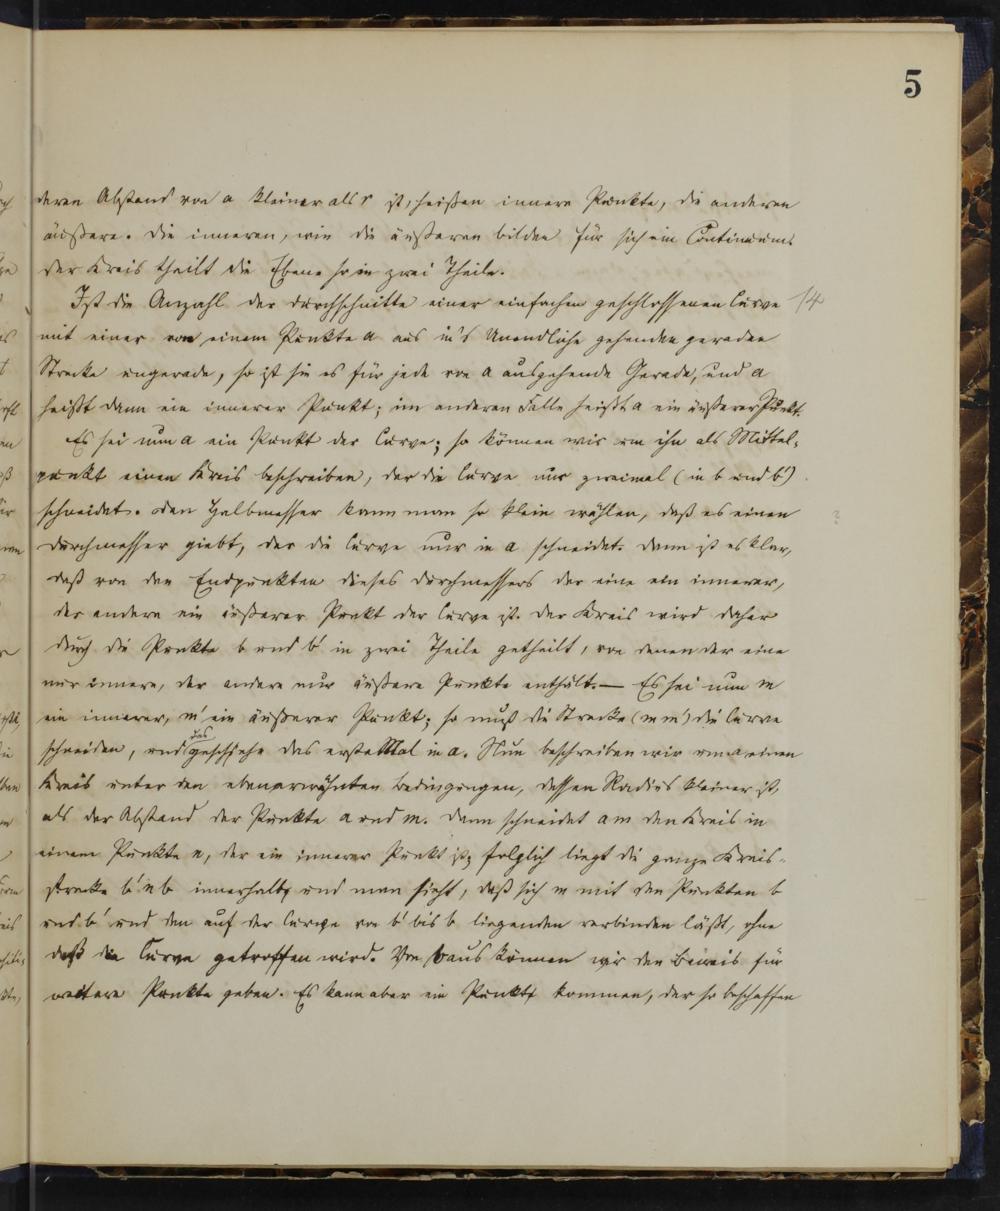 5
deren Abstand von a kleiner als r ist, heißen innere Punkte, die anderen
äußere. Die inneren, wie die äußeren bilden für sich ein Continuum.
Der Kreis theilt die Ebene so in zwei Theile.
Ist die Anzahl der Durchschnitte einer einfachen geschlossenen Curve 14
mit einer von einem Punkte a aus in's Unendliche gehenden geraden
Strecke ungerade, so ist sie es für jede von a ausgehende Gerade, und a
heißt dann ein innerer Punkt; im anderen Falle heißt a ein äußerer Punkt.
Es sei nun a ein Punkt der Curve; so können wir um ihn als Mittel-
punkt einen Kreis beschreiben, der die Curve nur zweimal (in b und b')
schneidet. Den Halbmesser kann man so klein wählen, daß es einen ?
Durchmesser giebt, der die Curve nur in a schneidet. Dann ist es klar,
daß von den Endpunkten dieses Durchmessers der eine ein innerer,
der andere ein äußerer Punkt der Curve ist. Der Kreis wird daher
durch die Punkte b und b' in zwei Theile getheilt, von denen der eine
nur innere, der andere nur äußere Punkte enthält. — Es sei nun m
ein innerer, m' ein äußerer Punkt; so muß die Strecke (m m') die Curve
schneiden, und das geschehe das erste Mal in a. Nun beschreiben wir um a einen
Kreis unter den ebenerwähnten Bedingungen, dessen Radius kleiner ist,
als der Abstand der Punkte a und m. Dann schneidet am den Kreis in
einem Punkte n, der ein innerer Punkt ist; folglich liegt die ganze Kreis-
strecke b'nb innerhalb, und man sieht, daß sich m mit den Punkten b
und b' und den auf der Curve von b' bis b liegenden verbinden läßt, ohne
daß die Curve getroffen wird. Von b aus können wir den Beweis für
weitere Punkte geben. Es kann aber ein Punkt kommen, der so beschaffen